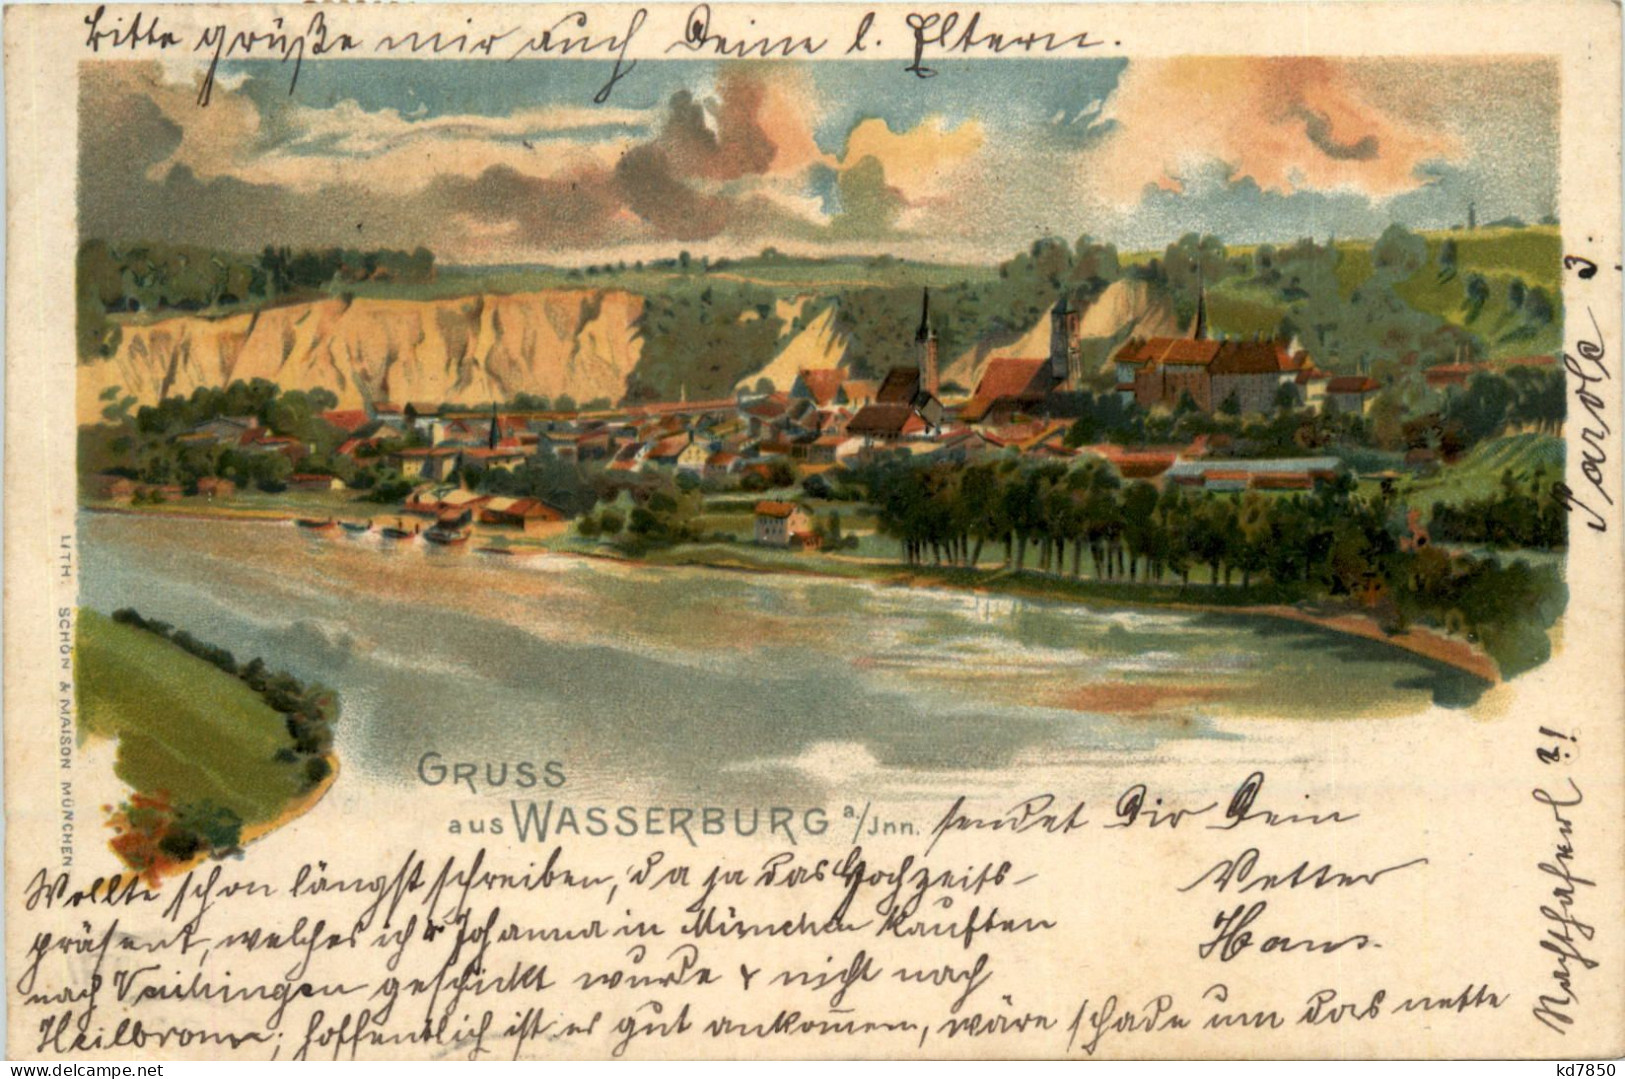 bitte grüße mir auch Deine l. Eltern.
Parole 3.
LITH. SCHÖN & MAISON MÜNCHEN
GRUSS
aus WASSERBURG a/Jnn. sendet Dir Dein
Vetter
Hans.
Wollte schon längst schreiben, da ja das Hochzeits-
präsent, welches ich & Johanna in München kauften
nach Vaihingen geschickt wurde & nicht nach
Heilbronn; hoffentlich ist es gut ankomen, wäre schade um das nette
?!
kd7850